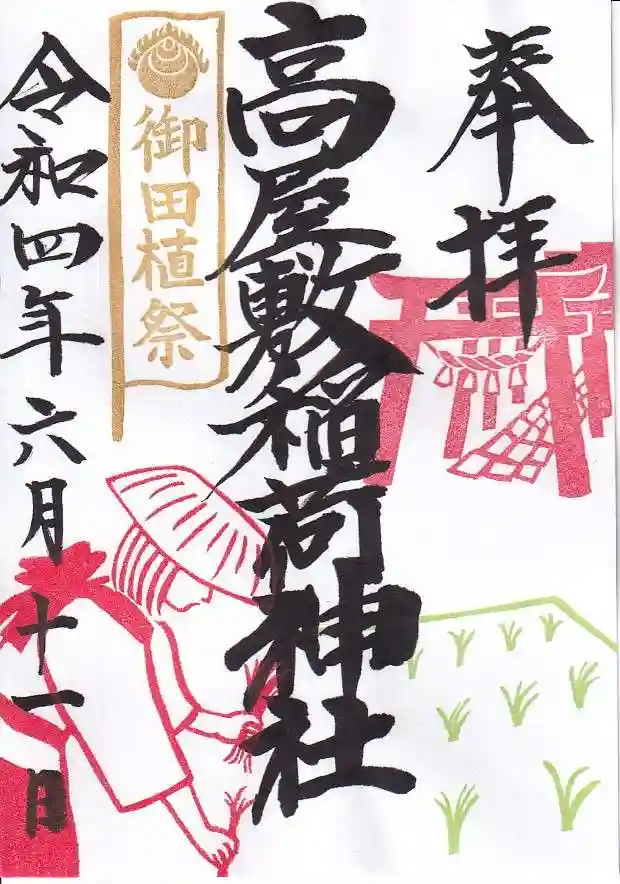 奉拝
高屋敷稲荷神社
御田植祭
令和四年六月十一日